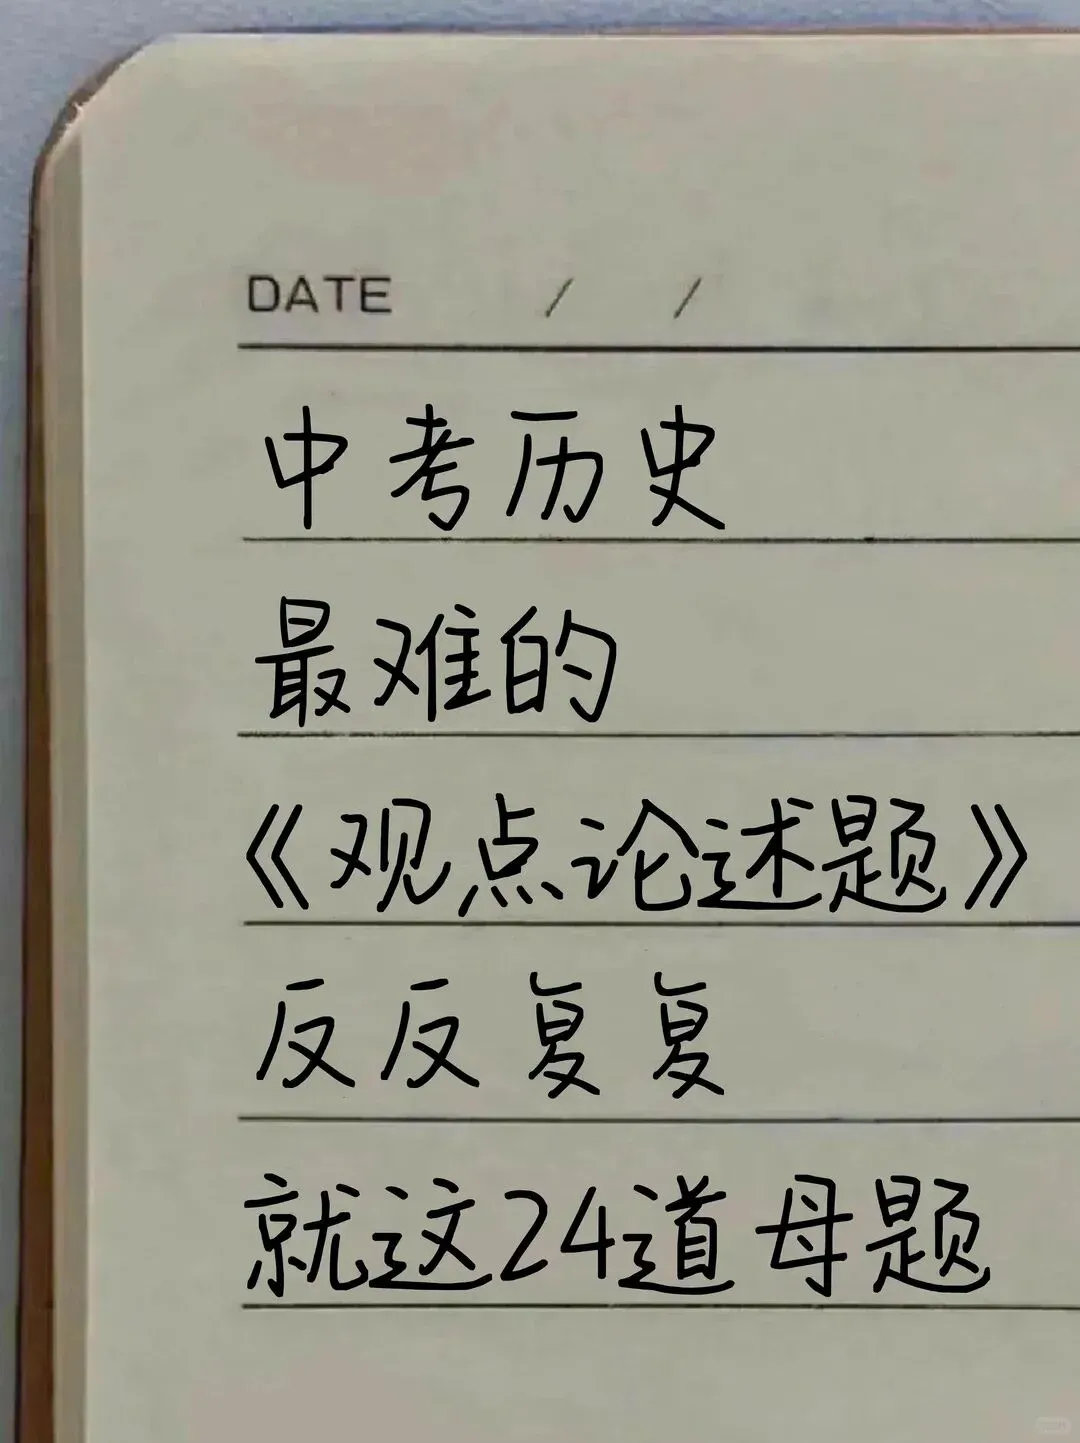 DATE / /
中考历史
最难的
《观点论述题》
反反复复
就这24道母题